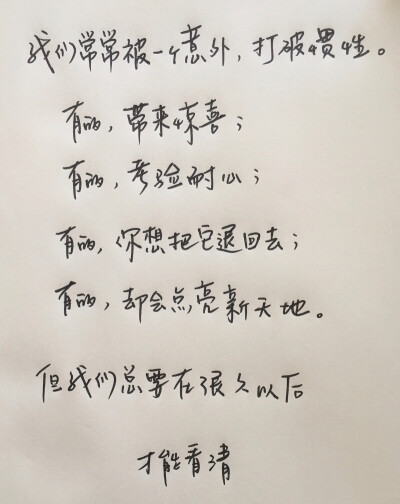 我们常常被一个意外，打破惯性。
有的，带来惊喜；
有的，考验耐心；
有的，你想把它退回去；
有的，却会点亮新天地。
但我们总要在很久以后
才能看清